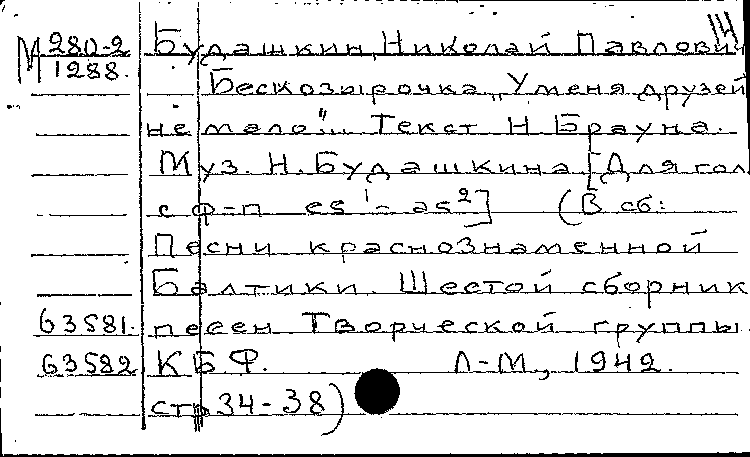 М 280-2 Будашкин, Николай Павлович
1288. Бескозырочка „У меня друзей
не мало"... Текст Н. Брауна.
Муз. Н. Будашкина. [Для гол
с ф-п es¹ - as²] (В сб:
Песни краснознаменной
Балтики. Шестой сборник
63581. песен Творческой группы
63582 КБФ. Л-М, 1942.
стр 34-38)